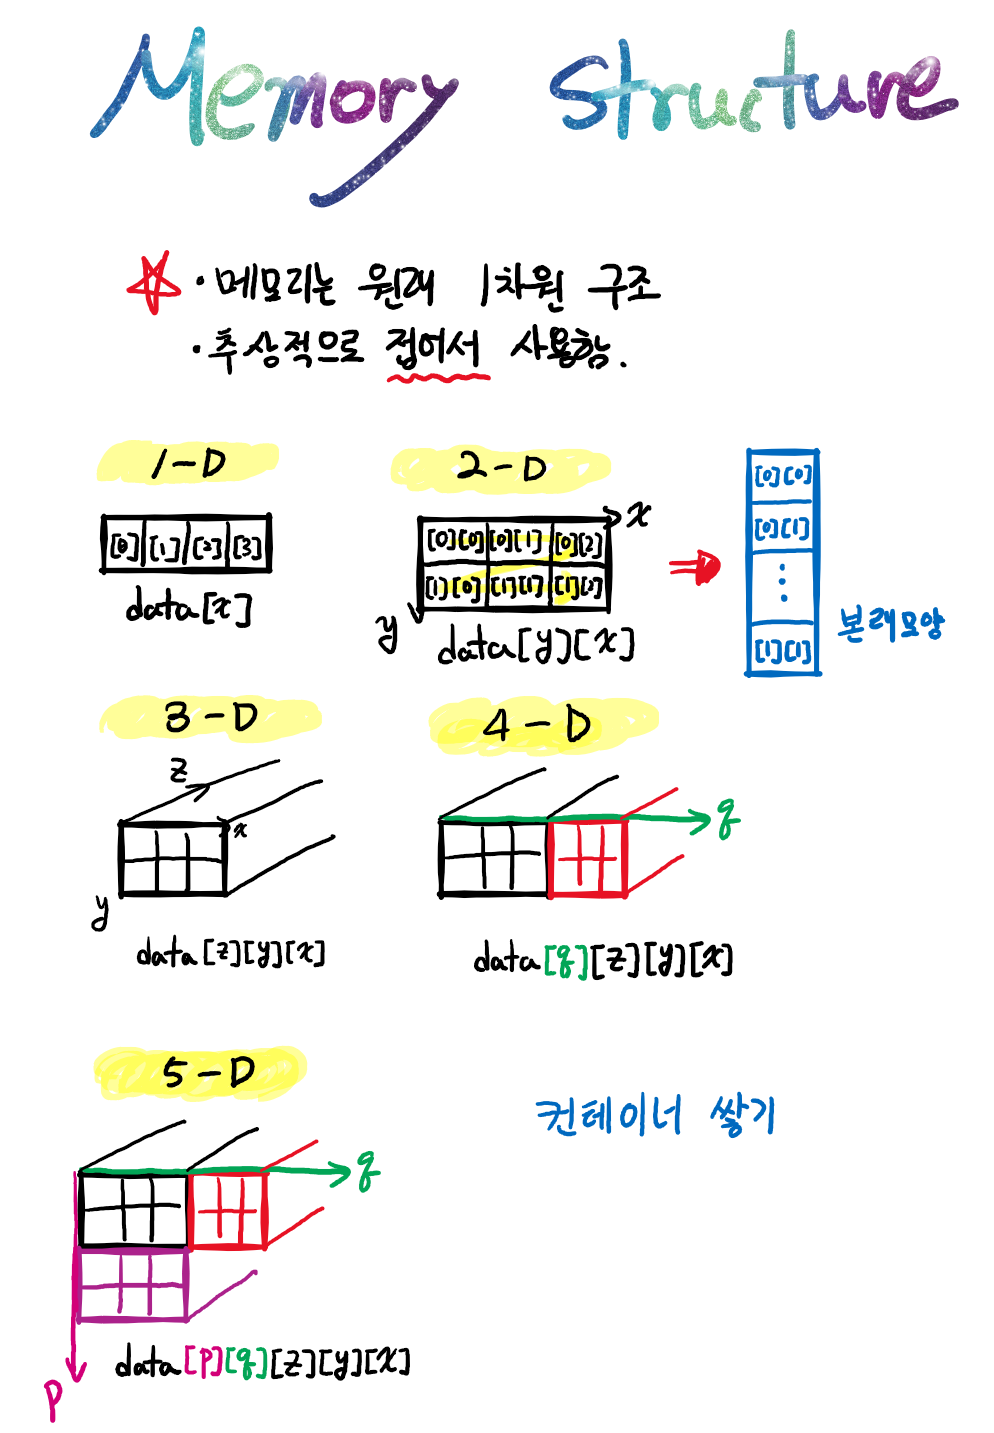 Memory Structure
• 메모리는 원래 1차원 구조
• 추상적으로 접어서 사용함.
1-D
[0] [1] [2] [3]
data[x]
2-D
x
[0][0] [0][1] [0][2]
[1][0] [1][1] [1][2]
y
data[y][x]
[0][0]
[0][1]
⋮
[1][1]
본래모양
3-D
z
x
y
data[z][y][x]
4-D
q
data[q][z][y][x]
5-D
컨테이너 쌓기
q
p
data[p][q][z][y][x]